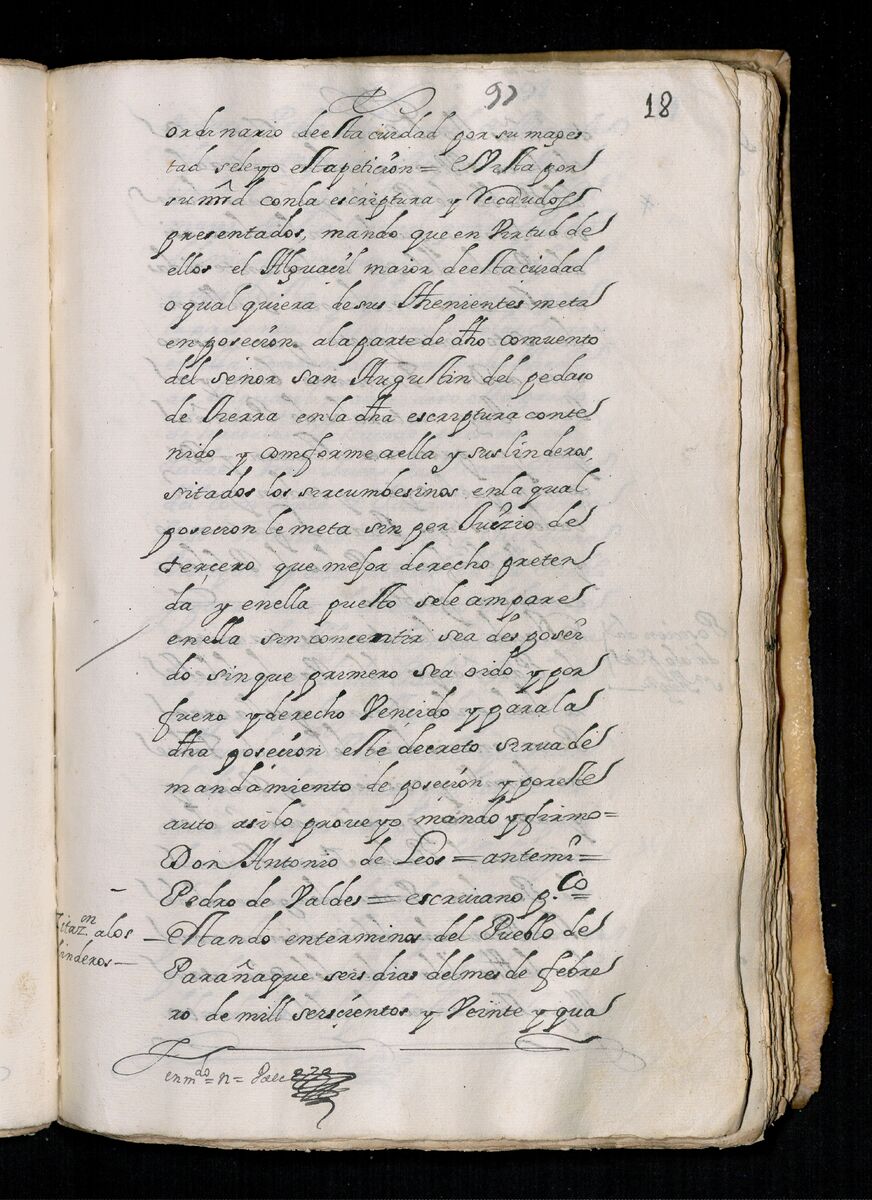 97
18
ordinario de esta ciudad por su mages
tad se leyo esta petición = Y vista por
su mrd con la escriptura y Recaudos
presentados, mando que en Virtud de
ellos el Alguacil maior de esta ciudad
o qual quiera de sus thenientes meta
en poseción a la parte de dho comuento
del señor San Augustin del pedaso
de tierra en la dha escriptura conte
nido y comforme a ella y sus linderos
sitados los sircumbesinos en la qual
posecion le meta sin per Juizio de
tercero que mejor derecho preten
da y en ella puesto se le ampare
en ella sin concentir sea desposeí
do sin que primero sea oido y por
fuero y derecho Vencido y para la
dha poseción este decreto sirua de
mandamiento de poseción y por este
auto asi lo proveyo mando y firmo=
Don Antonio de Leos = ante mi =
Pedro de Valdes = escriuano p.co =
Zitaz.on a los
linderos—
—Estando en terminos del Pueblo de
Parañaque seis dias del mes de febre
ro de mill seiscientos y Veinte y qua
enm.do = n =